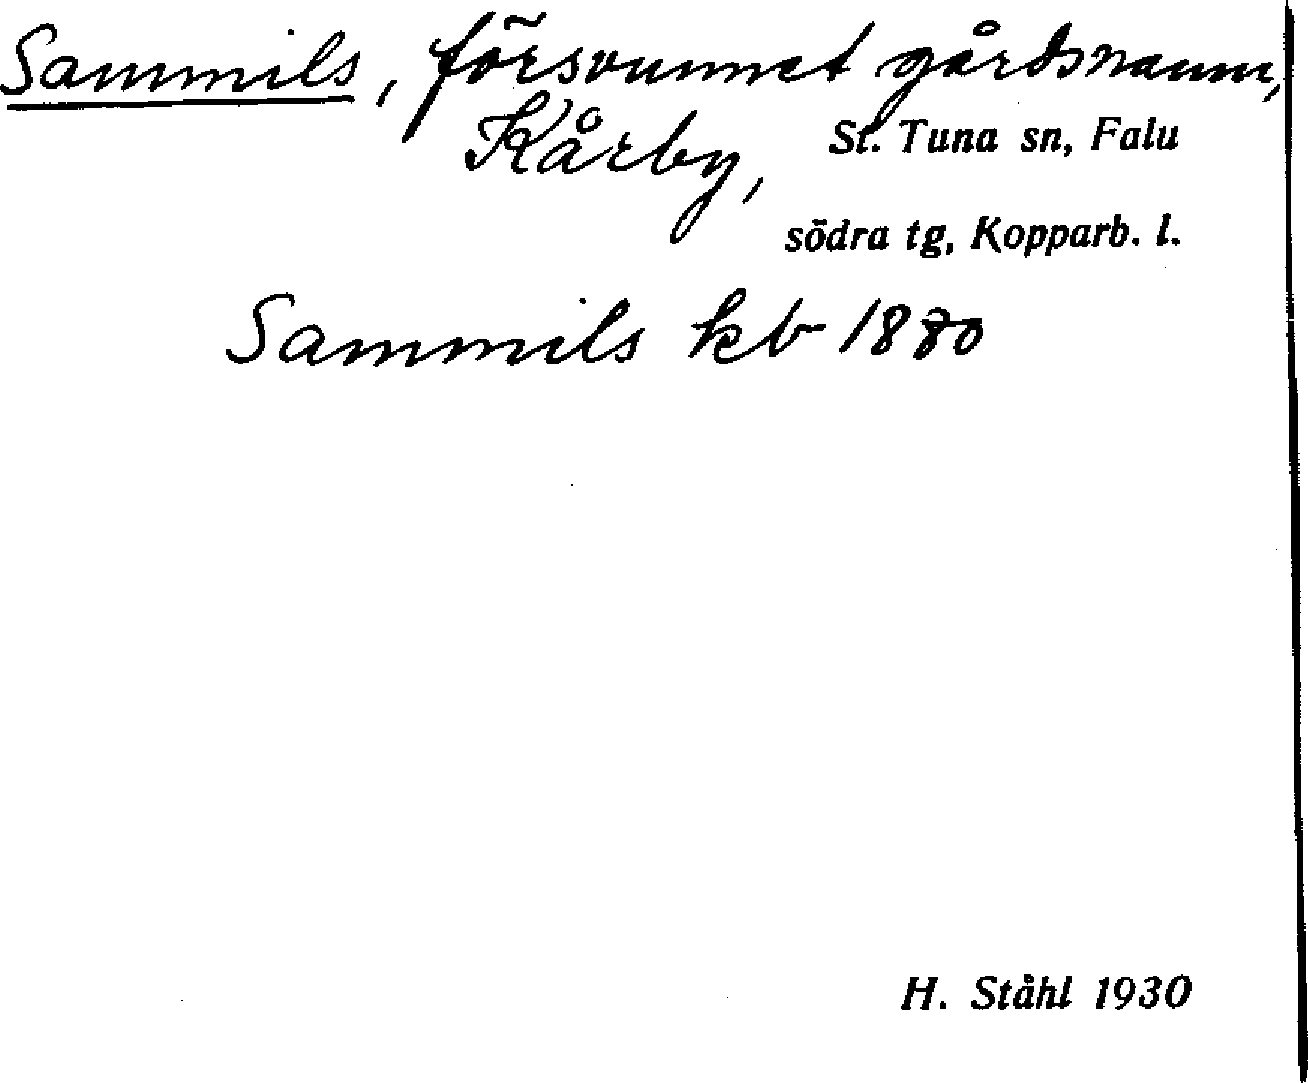 Sammils, försvunnet gårdsnamn,
Kårby, St. Tuna sn, Falu
södra tg, Kopparb. l.
Sammils kb 1880
H. Ståhl 1930